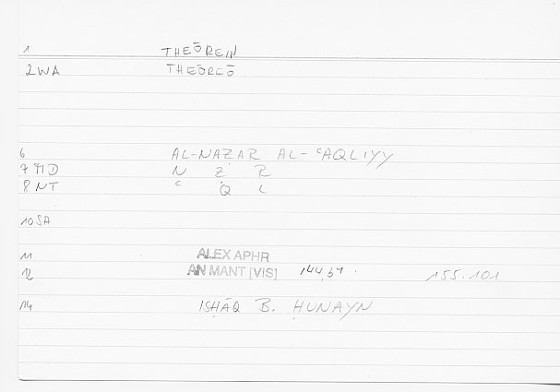 1 THEŌREIN
2 WA THEŌREŌ
6 AL-NAZAR AL-ʿAQLIYY
7 MD N Ẓ R
8 NT ʿ Q L
10 SA
11 ALEX APHR
12 AN MANT [VIS] 144,61 155.101
14 ISḤĀQ B. ḤUNAYN